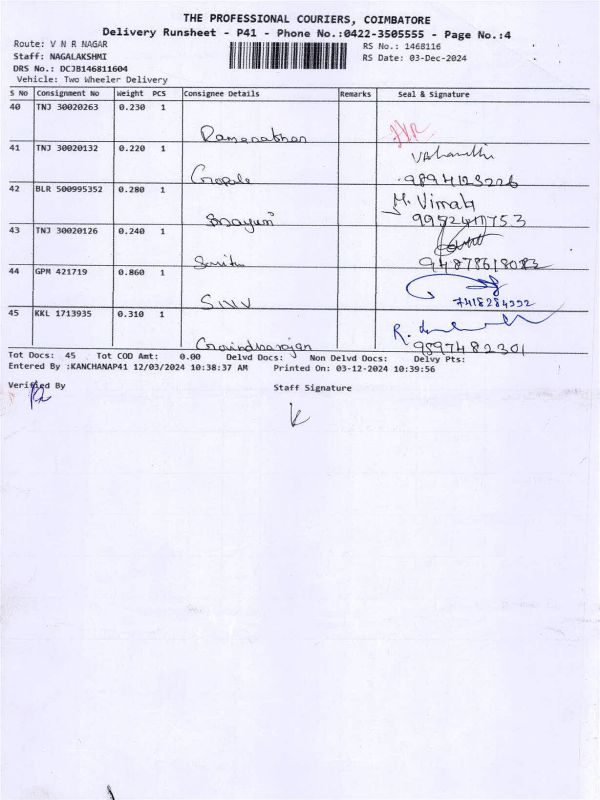 THE PROFESSIONAL COURIERS, COIMBATORE
Delivery Runsheet - P41 - Phone No.:0422-3505555 - Page No.:4
Route: V N R NAGAR
RS No.: 1468116
Staff: NAGALAKSHMI
RS Date: 03-Dec-2024
DRS No.: DCJB146811604
Vehicle: Two Wheeler Delivery
S No Consignment No Weight PCS Consignee Details Remarks Seal & Signature
40 TNJ 30020263 0.230 1
Ramanathan
41 TNJ 30020132 0.220 1
Gopale
9894123226
42 BLR 500995352 0.280 1
M. Vimala
9952411753
43 TNJ 30020126 0.240 1
Sarita
44 GPM 421719 0.860 1
SNV
7418284332
45 KKL 1713935 0.310 1
R.
Govindharajan
9897482301
Tot Docs: 45 Tot COD Amt: 0.00 Delvd Docs: Non Delvd Docs: Delvy Pts:
Entered By :KANCHANAP41 12/03/2024 10:38:37 AM Printed On: 03-12-2024 10:39:56
Verified By
Staff Signature